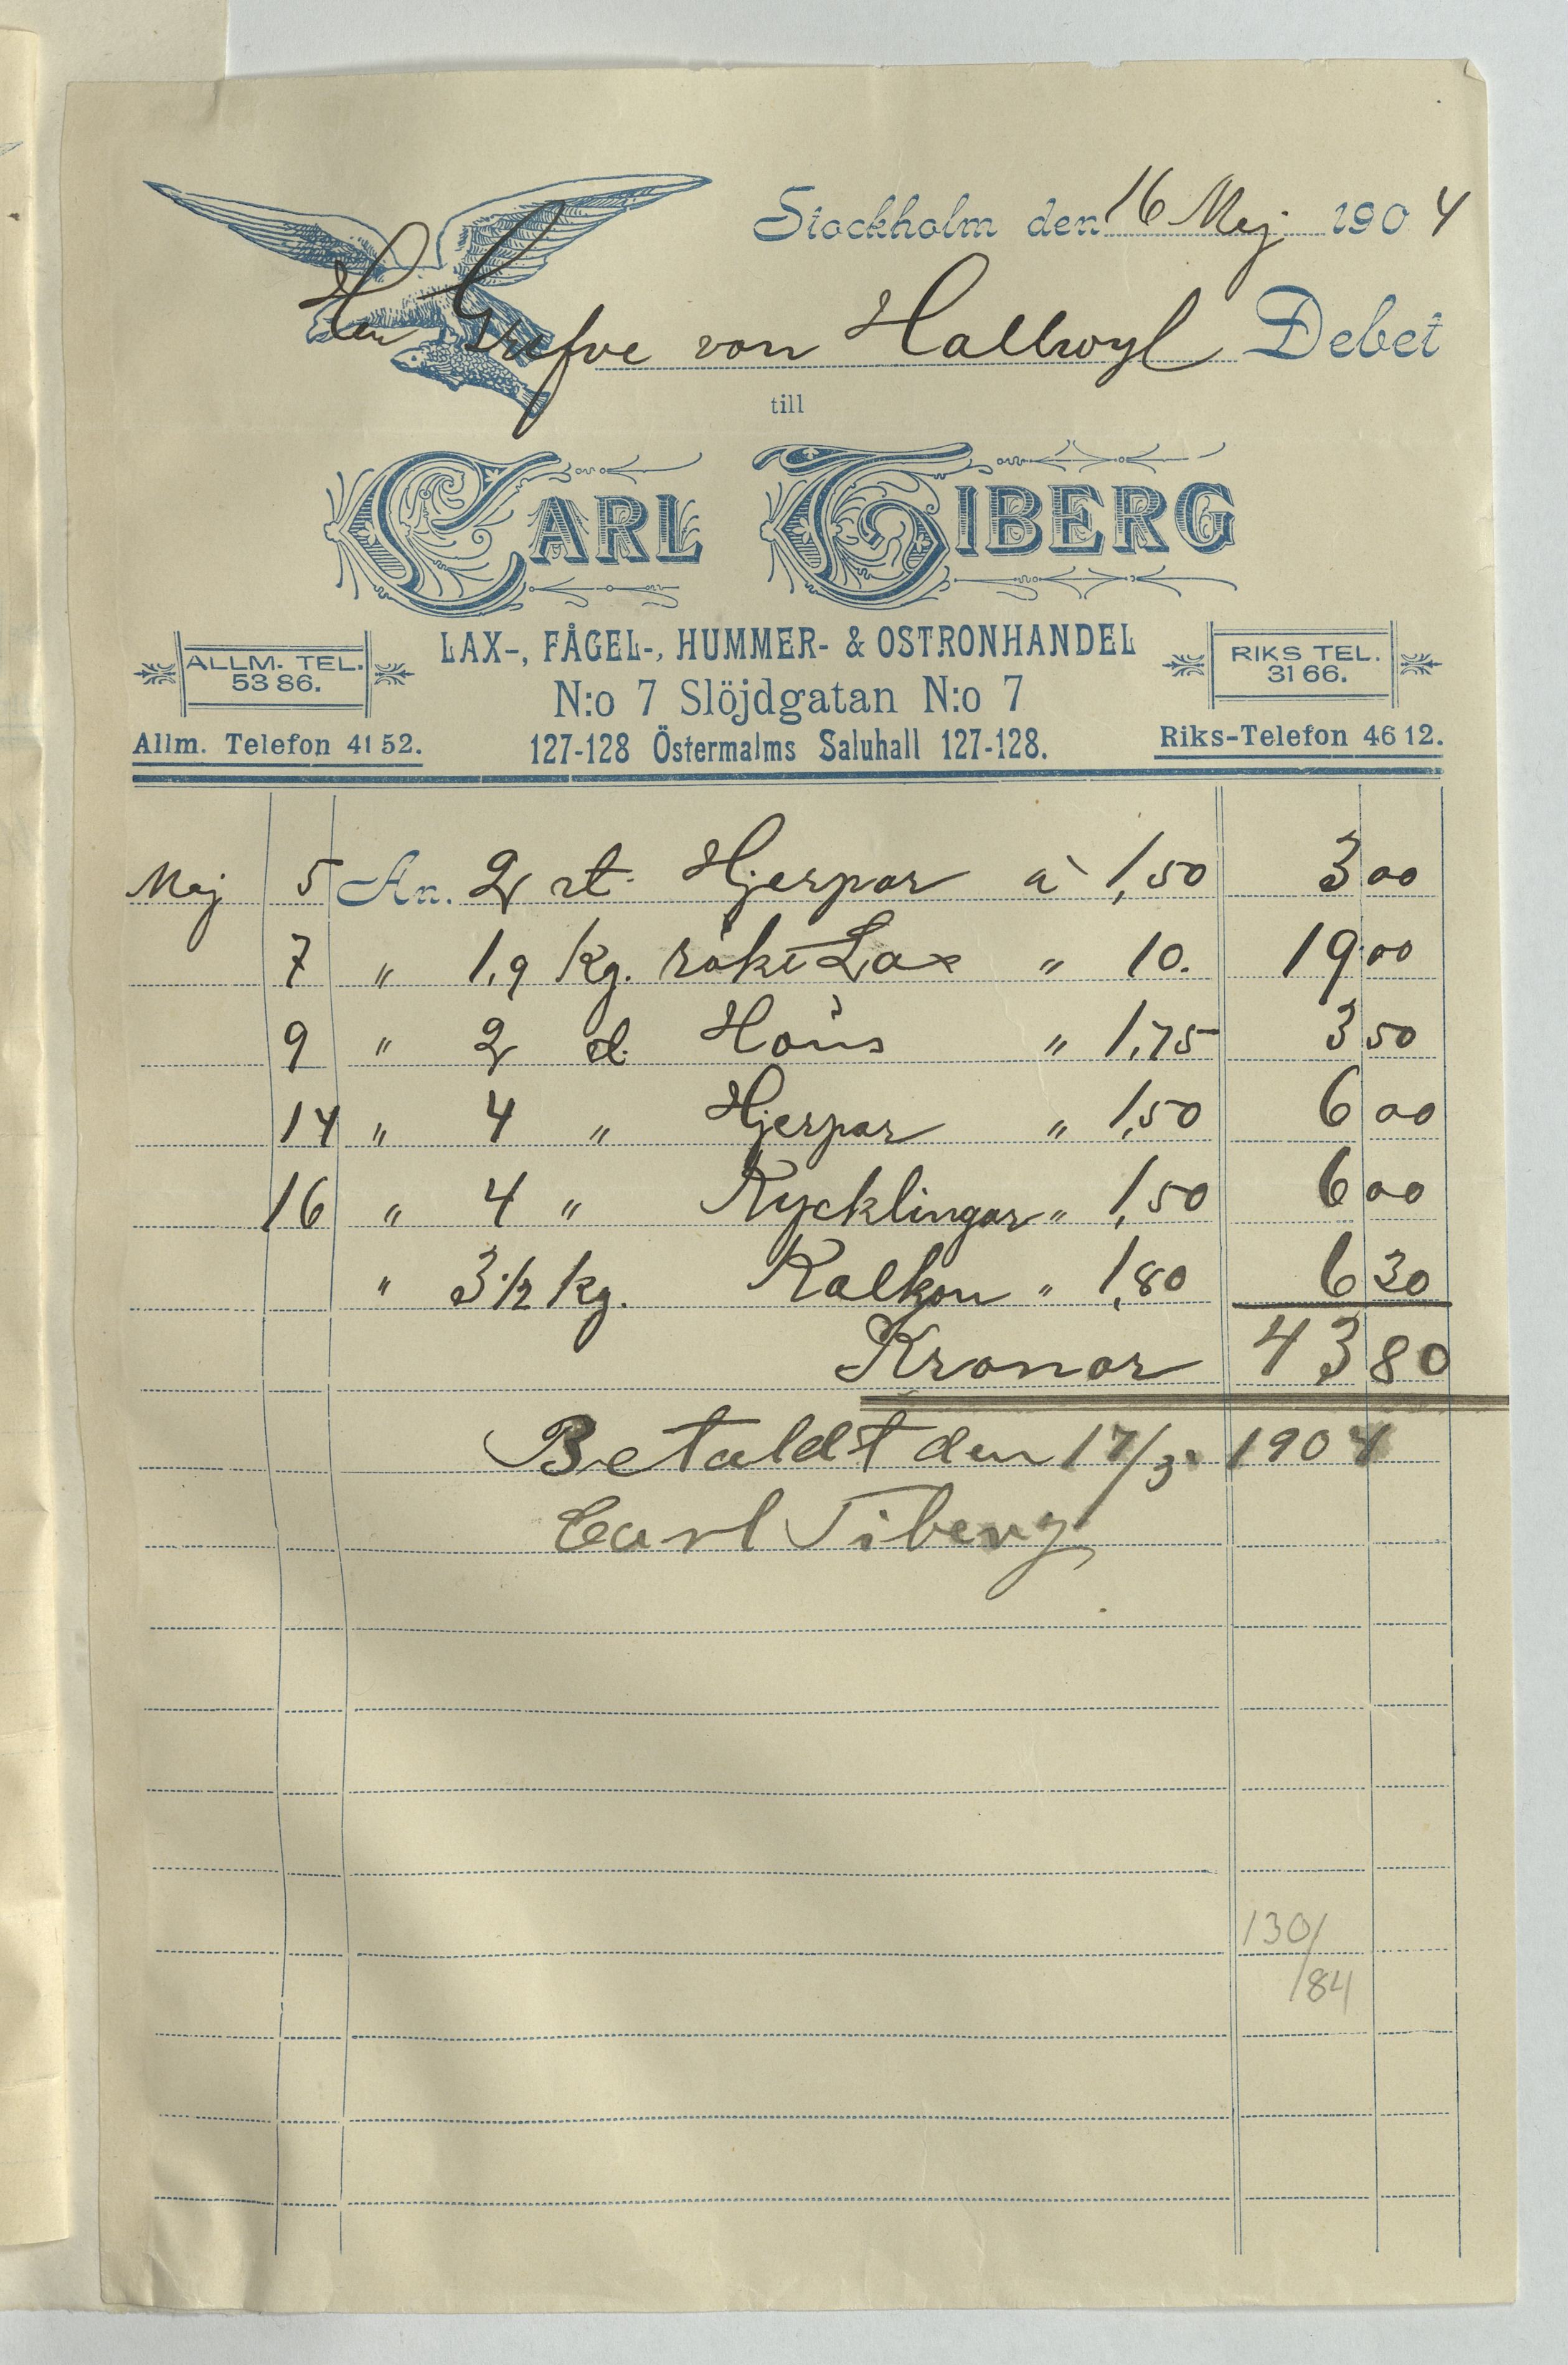 Stockholm den 16 Maj 1904
Herr Grefve von Hallwyl Debet
till
CARL TIBERG
LAX-, FÅGEL-, HUMMER- & OSTRONHANDEL
ALLM. TEL. 53 86.
N:o 7 Slöjdgatan N:o 7
RIKS TEL. 31 66.
Allm. Telefon 41 52.
127-128 Östermalms Saluhall 127-128.
Riks-Telefon 46 12.
Maj 5 An. 2 st. Hjerpar à 1,50 3 00
7 " 1,9 kg. rökt Lax " 10. 19 00
9 " 2 d. Höns " 1,75 3 50
14 " 4 " Hjerpar " 1,50 6 00
16 " 4 " Kycklingar " 1,50 6 00
" 3 1/2 kg. Kalkon " 1,80 6 30
Kronor 43 80
Betaldt den 17/5 1904
Carl Tiberg
130/
/84